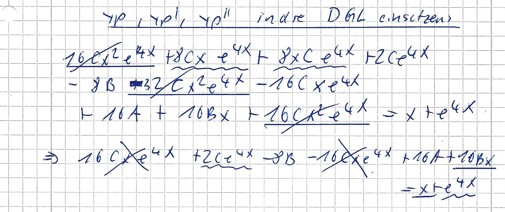 yp, yp', yp'' in die DGL einsetzen:
16Cx²e^4x + 8Cx e^4x + 8xC e^4x + 2Ce^4x
- 8B - 32Cx²e^4x - 16Cxe^4x
+ 16A + 16Bx + 16Cx²e^4x = x + e^4x
⇒ 16Cxe^4x + 2Ce^4x - 8B - 16Cxe^4x + 16A + 16Bx
= x + e^4x